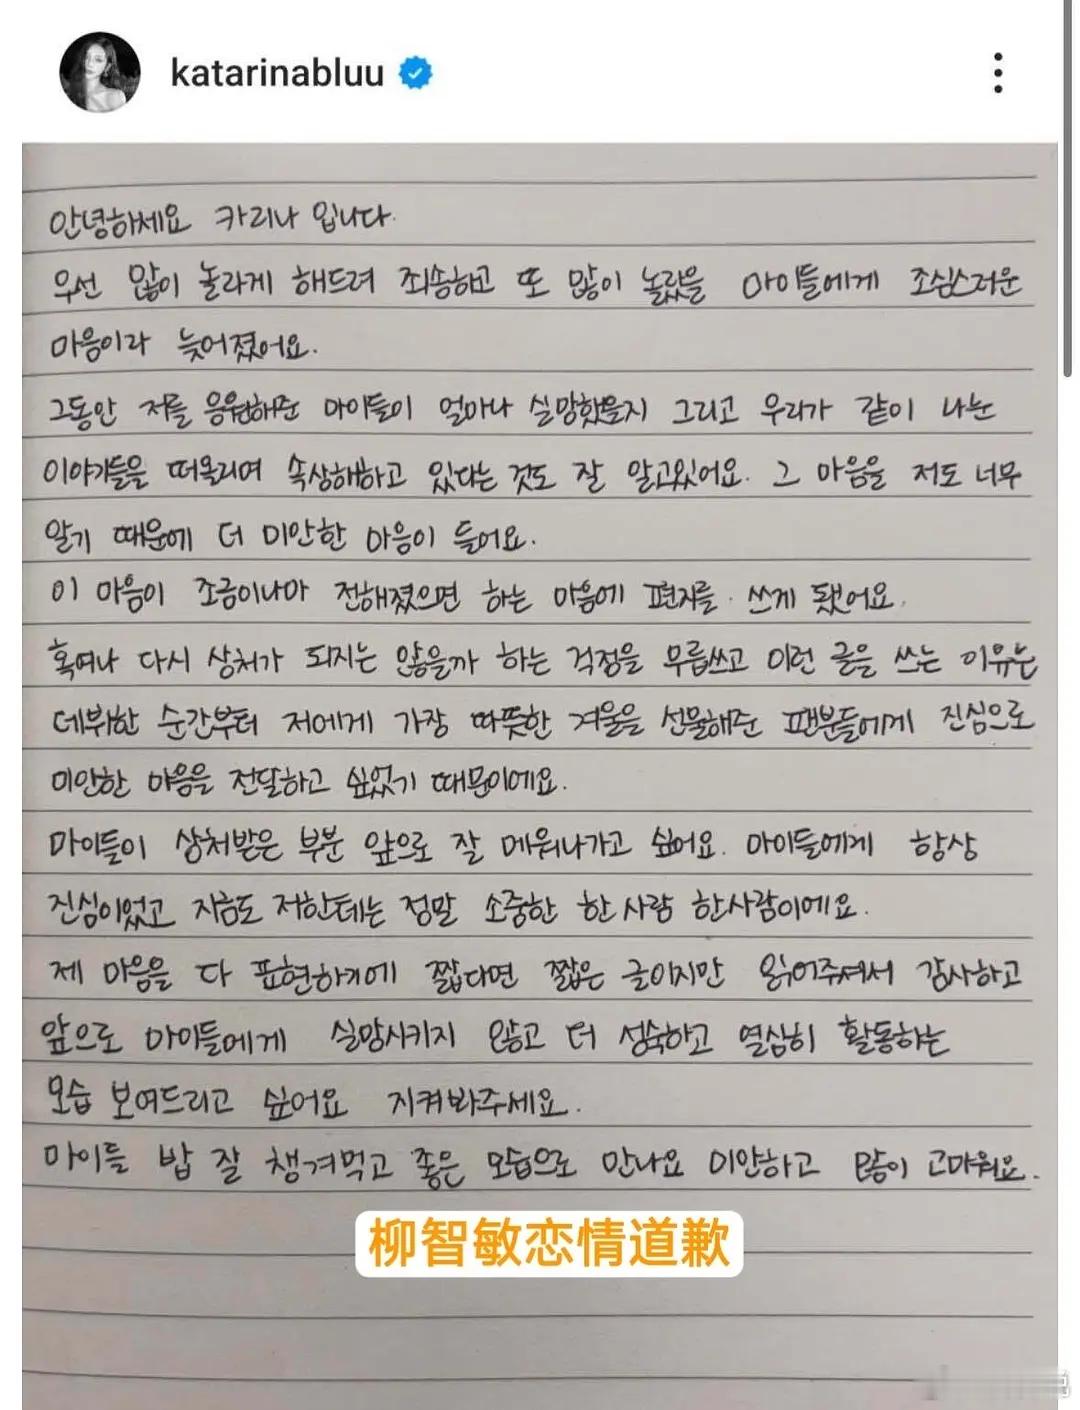 katarinabluu
안녕하세요 카리나 입니다.
우선 많이 놀라게 해드려 죄송하고 또 많이 놀랐을 마이들에게 조심스러운
마음이라 늦어졌어요.
그동안 저를 응원해준 마이들이 얼마나 실망했을지 그리고 우리가 같이 나눈
이야기들을 떠올리며 속상해하고 있다는 것도 잘 알고있어요. 그 마음을 저도 너무
알기 때문에 더 미안한 마음이 들어요.
이 마음이 조금이나마 전해졌으면 하는 마음에 편지를 쓰게 됐어요.
혹여나 다시 상처가 되지는 않을까 하는 걱정을 무릅쓰고 이런 글을 쓰는 이유는
데뷔한 순간부터 저에게 가장 따뜻한 겨울을 선물해준 팬분들에게 진심으로
미안한 마음을 전달하고 싶었기 때문이에요.
마이들이 상처받은 부분 앞으로 잘 메워나가고 싶어요. 마이들에게 항상
진심이었고 지금도 저한테는 정말 소중한 한 사람 한사람이에요.
제 마음을 다 표현하기에 짧다면 짧은 글이지만 읽어주셔서 감사하고
앞으로 마이들에게 실망시키지 않고 더 성숙하고 열심히 활동하는
모습 보여드리고 싶어요 지켜봐주세요.
마이들 밥 잘 챙겨먹고 좋은 모습으로 만나요 미안하고 많이 고마워요.
柳智敏恋情道歉